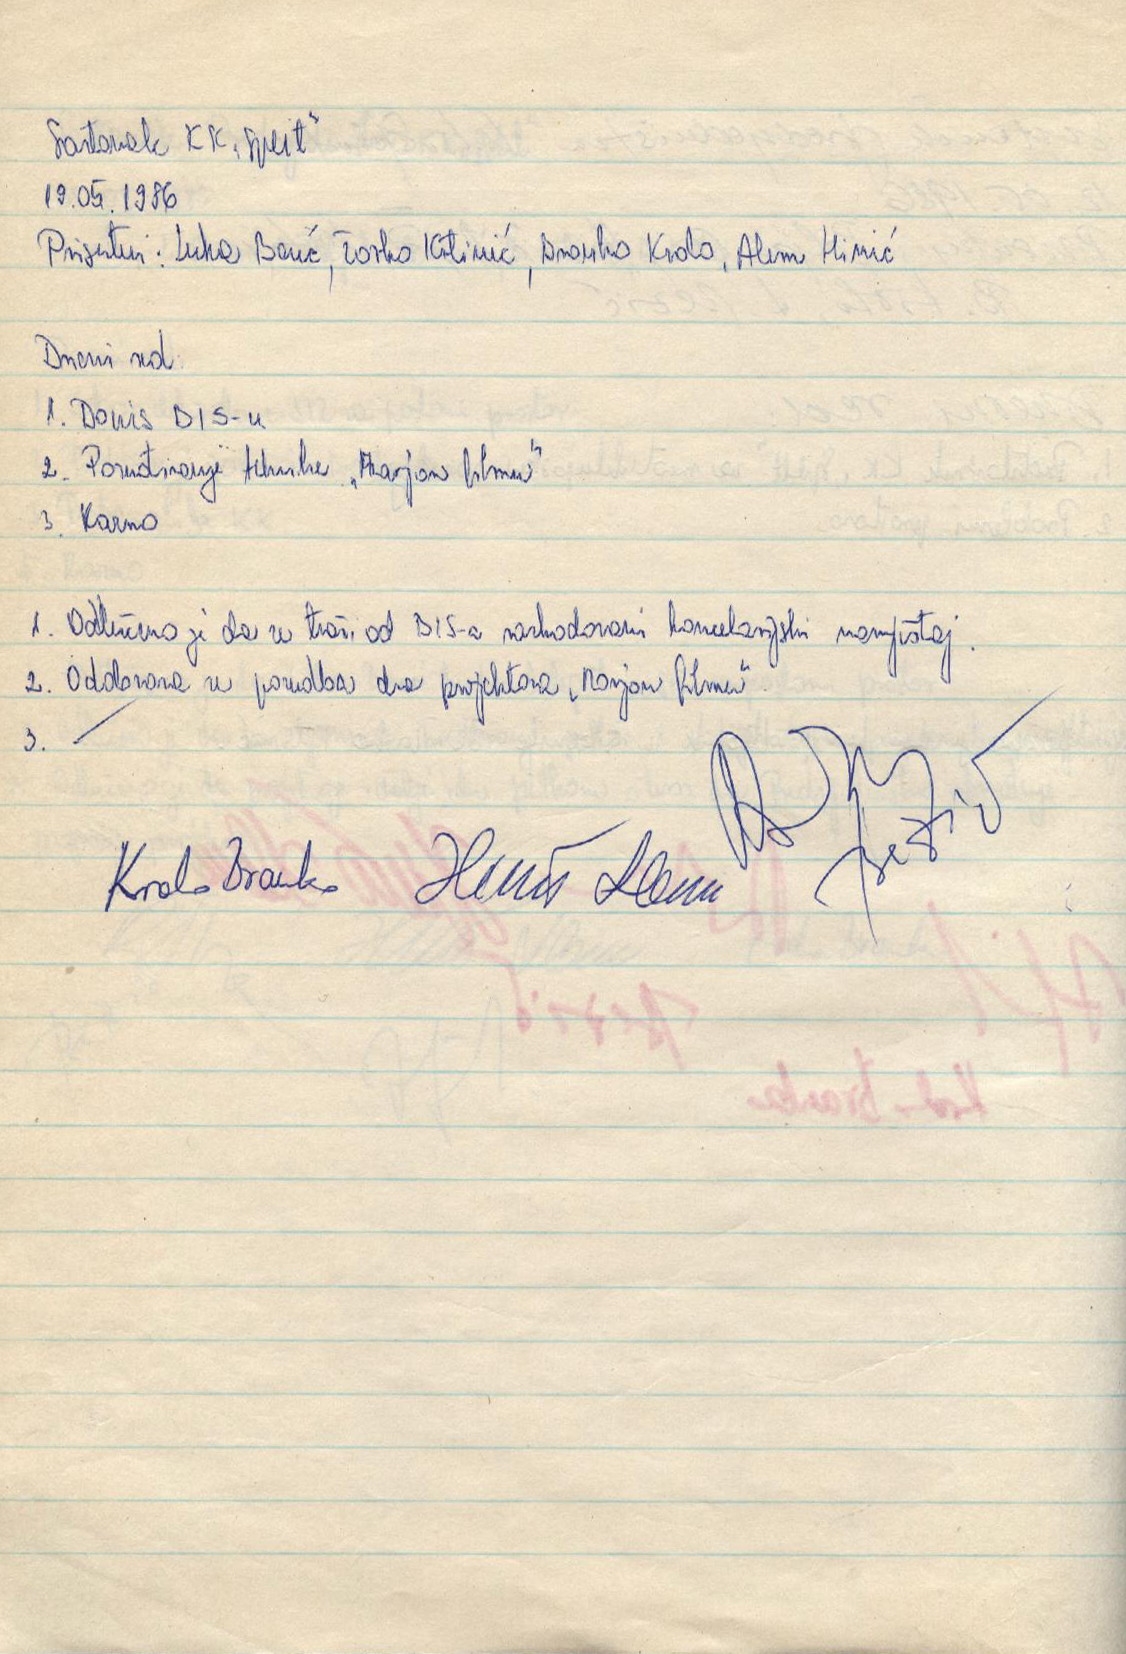 Sastanak KK „Split“
19.05.1986
Prisutni: Luka Bezić, Žarko Kilinić, Branko Krolo, Alem Himić
Dnevni red:
1. Dopis BIS-u
2. Posuđivanje tehnike „Marjan filmu“
3. Razno
1. Odlučeno je da se traži od BIS-a rashodovani kancelarijski namještaj.
2. Odobrava se posudba dva projektora „Marjan filmu“.
3. 
Krolo Branko